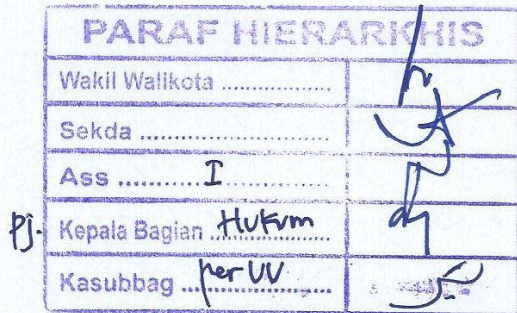 PARAF HIERARKHIS
Wakil Walikota ..............
Sekda ............................
Ass ........ I ..................
Pj. Kepala Bagian Hukum
Kasubbag per UU